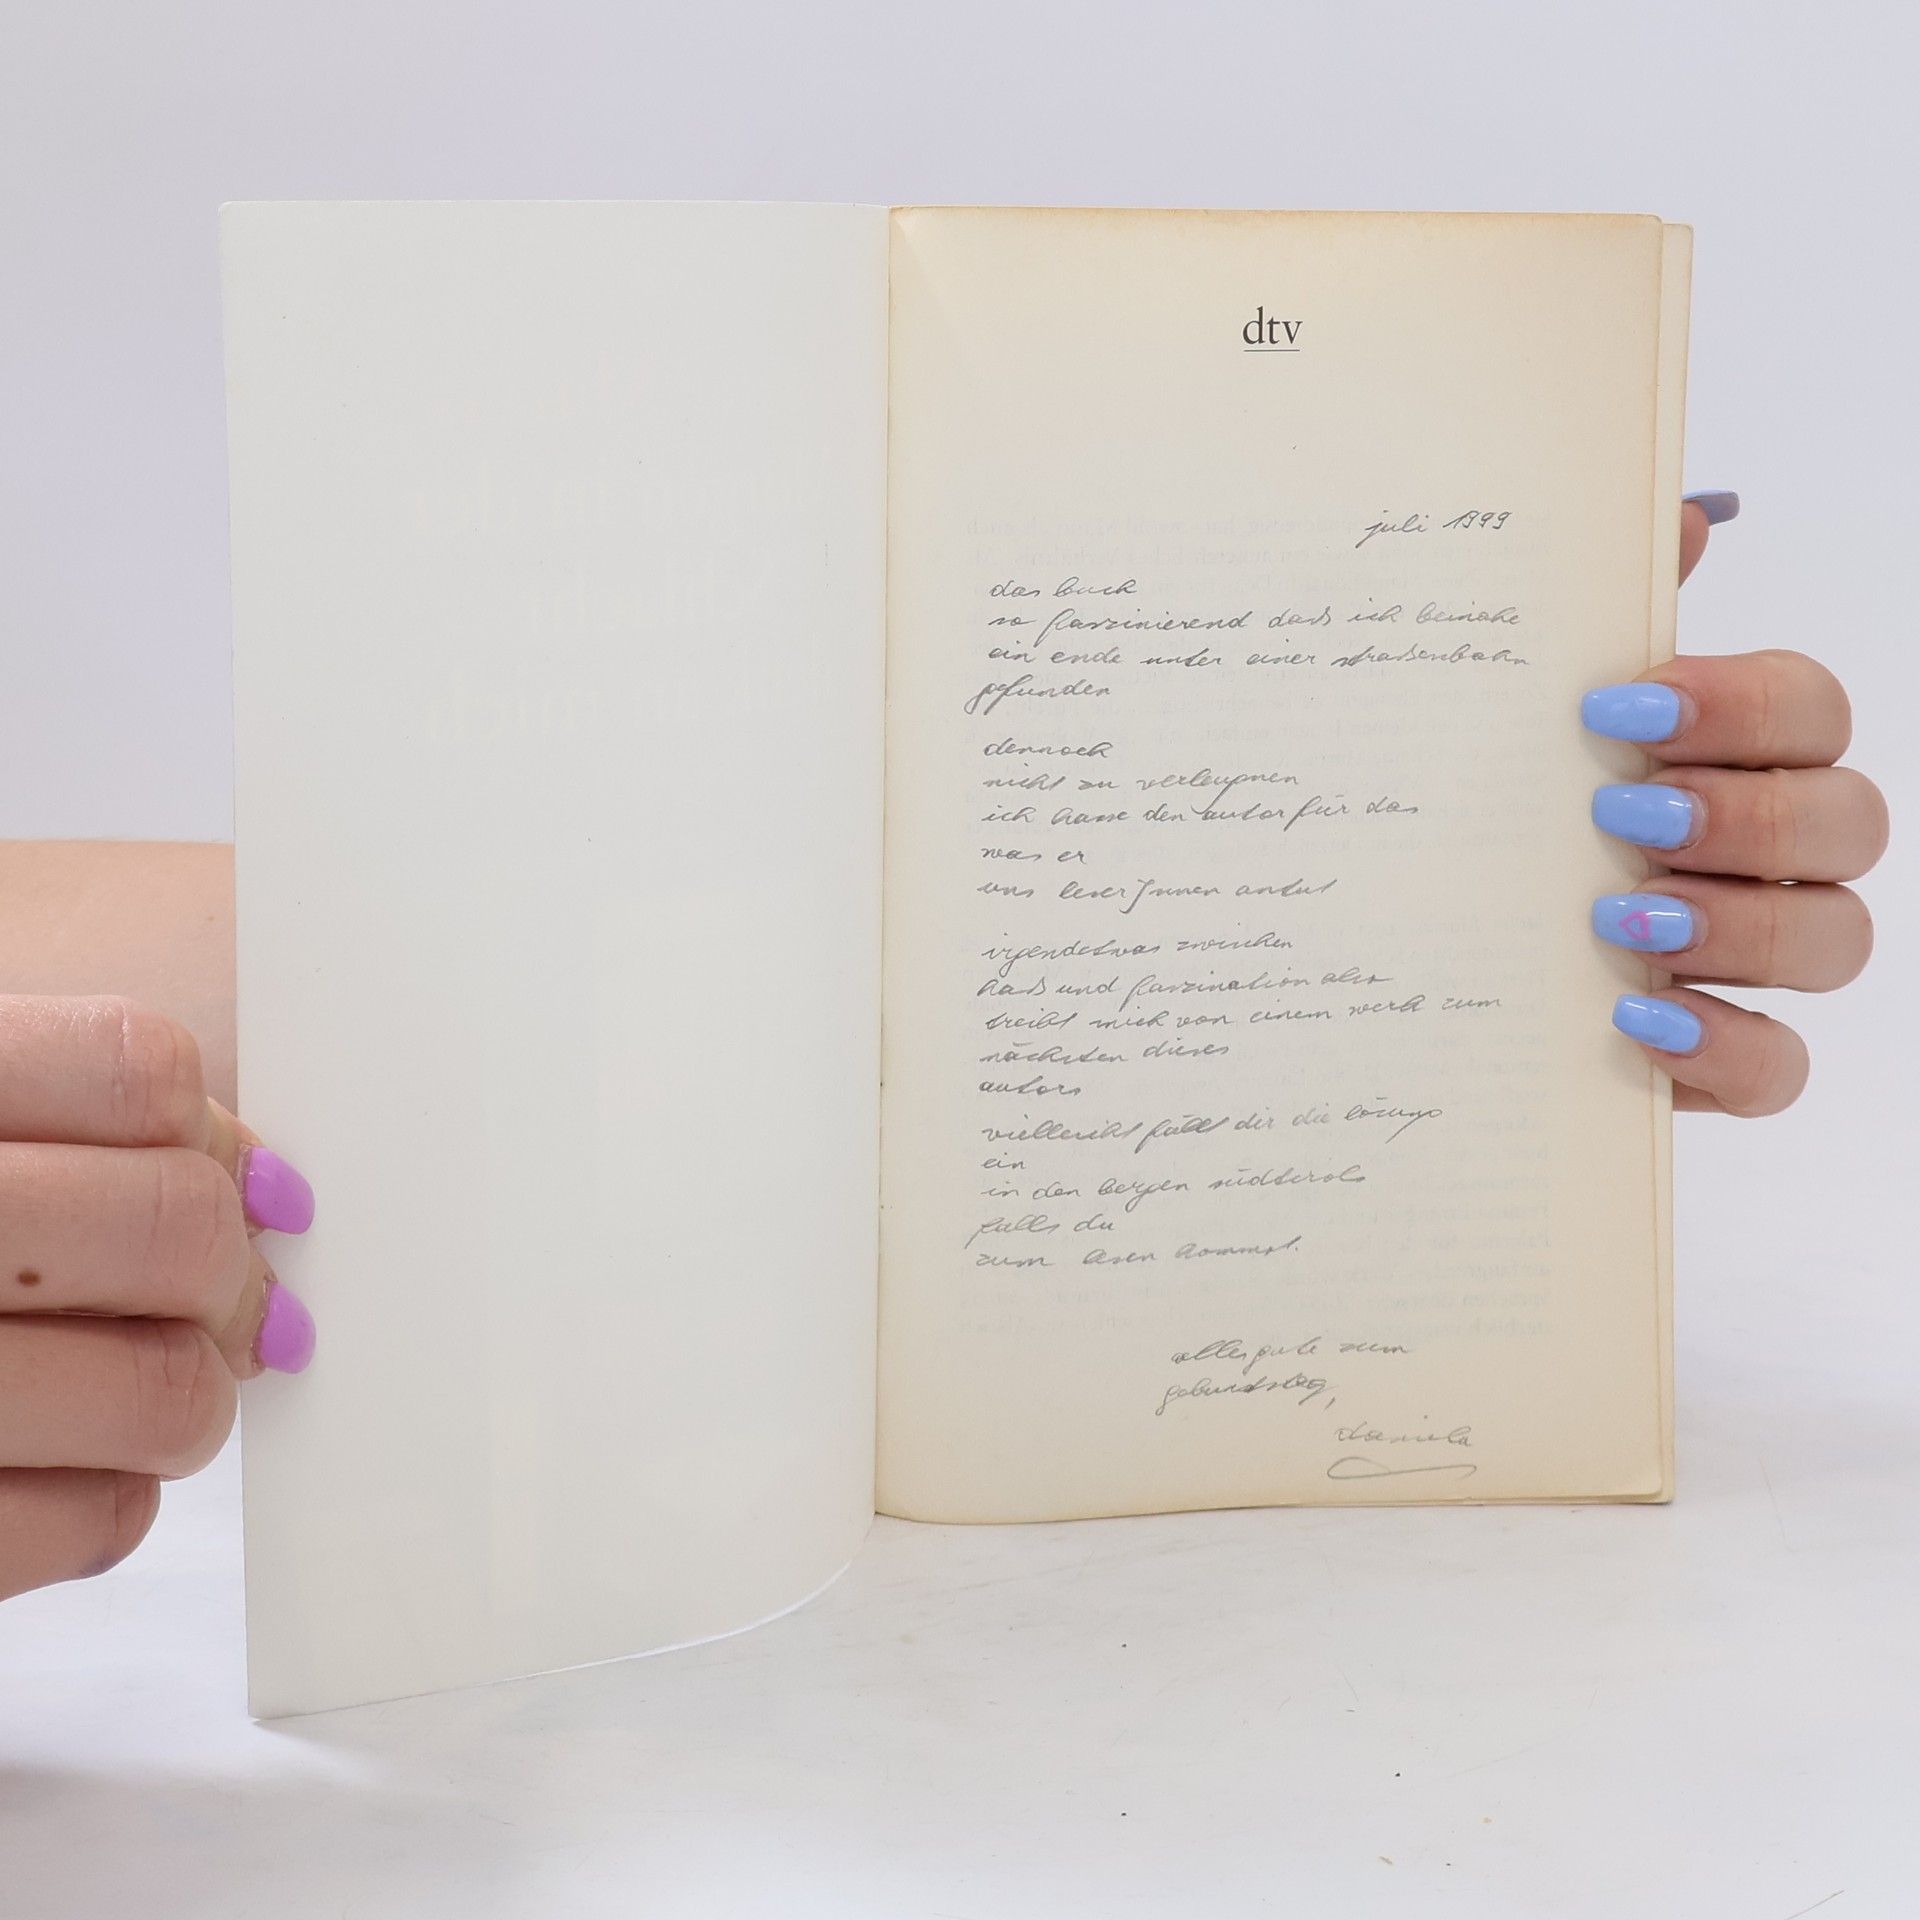 dtv
juli 1999
das buch
so faszinierend daß ich beinahe
ein ende unter einer straßenbahn
gefunden
dennoch
nicht zu verleugnen
ich hasse den autor für das
was er
uns leserInnen antut
irgendetwas zwischen
haß und faszination also
treibt mich von einem werk zum
nächsten dieses
autors
vielleicht fällt dir die lösung
ein
in den bergen südtirols
falls du
zum lesen kommst.
alles gute zum
geburtstag,
daniela